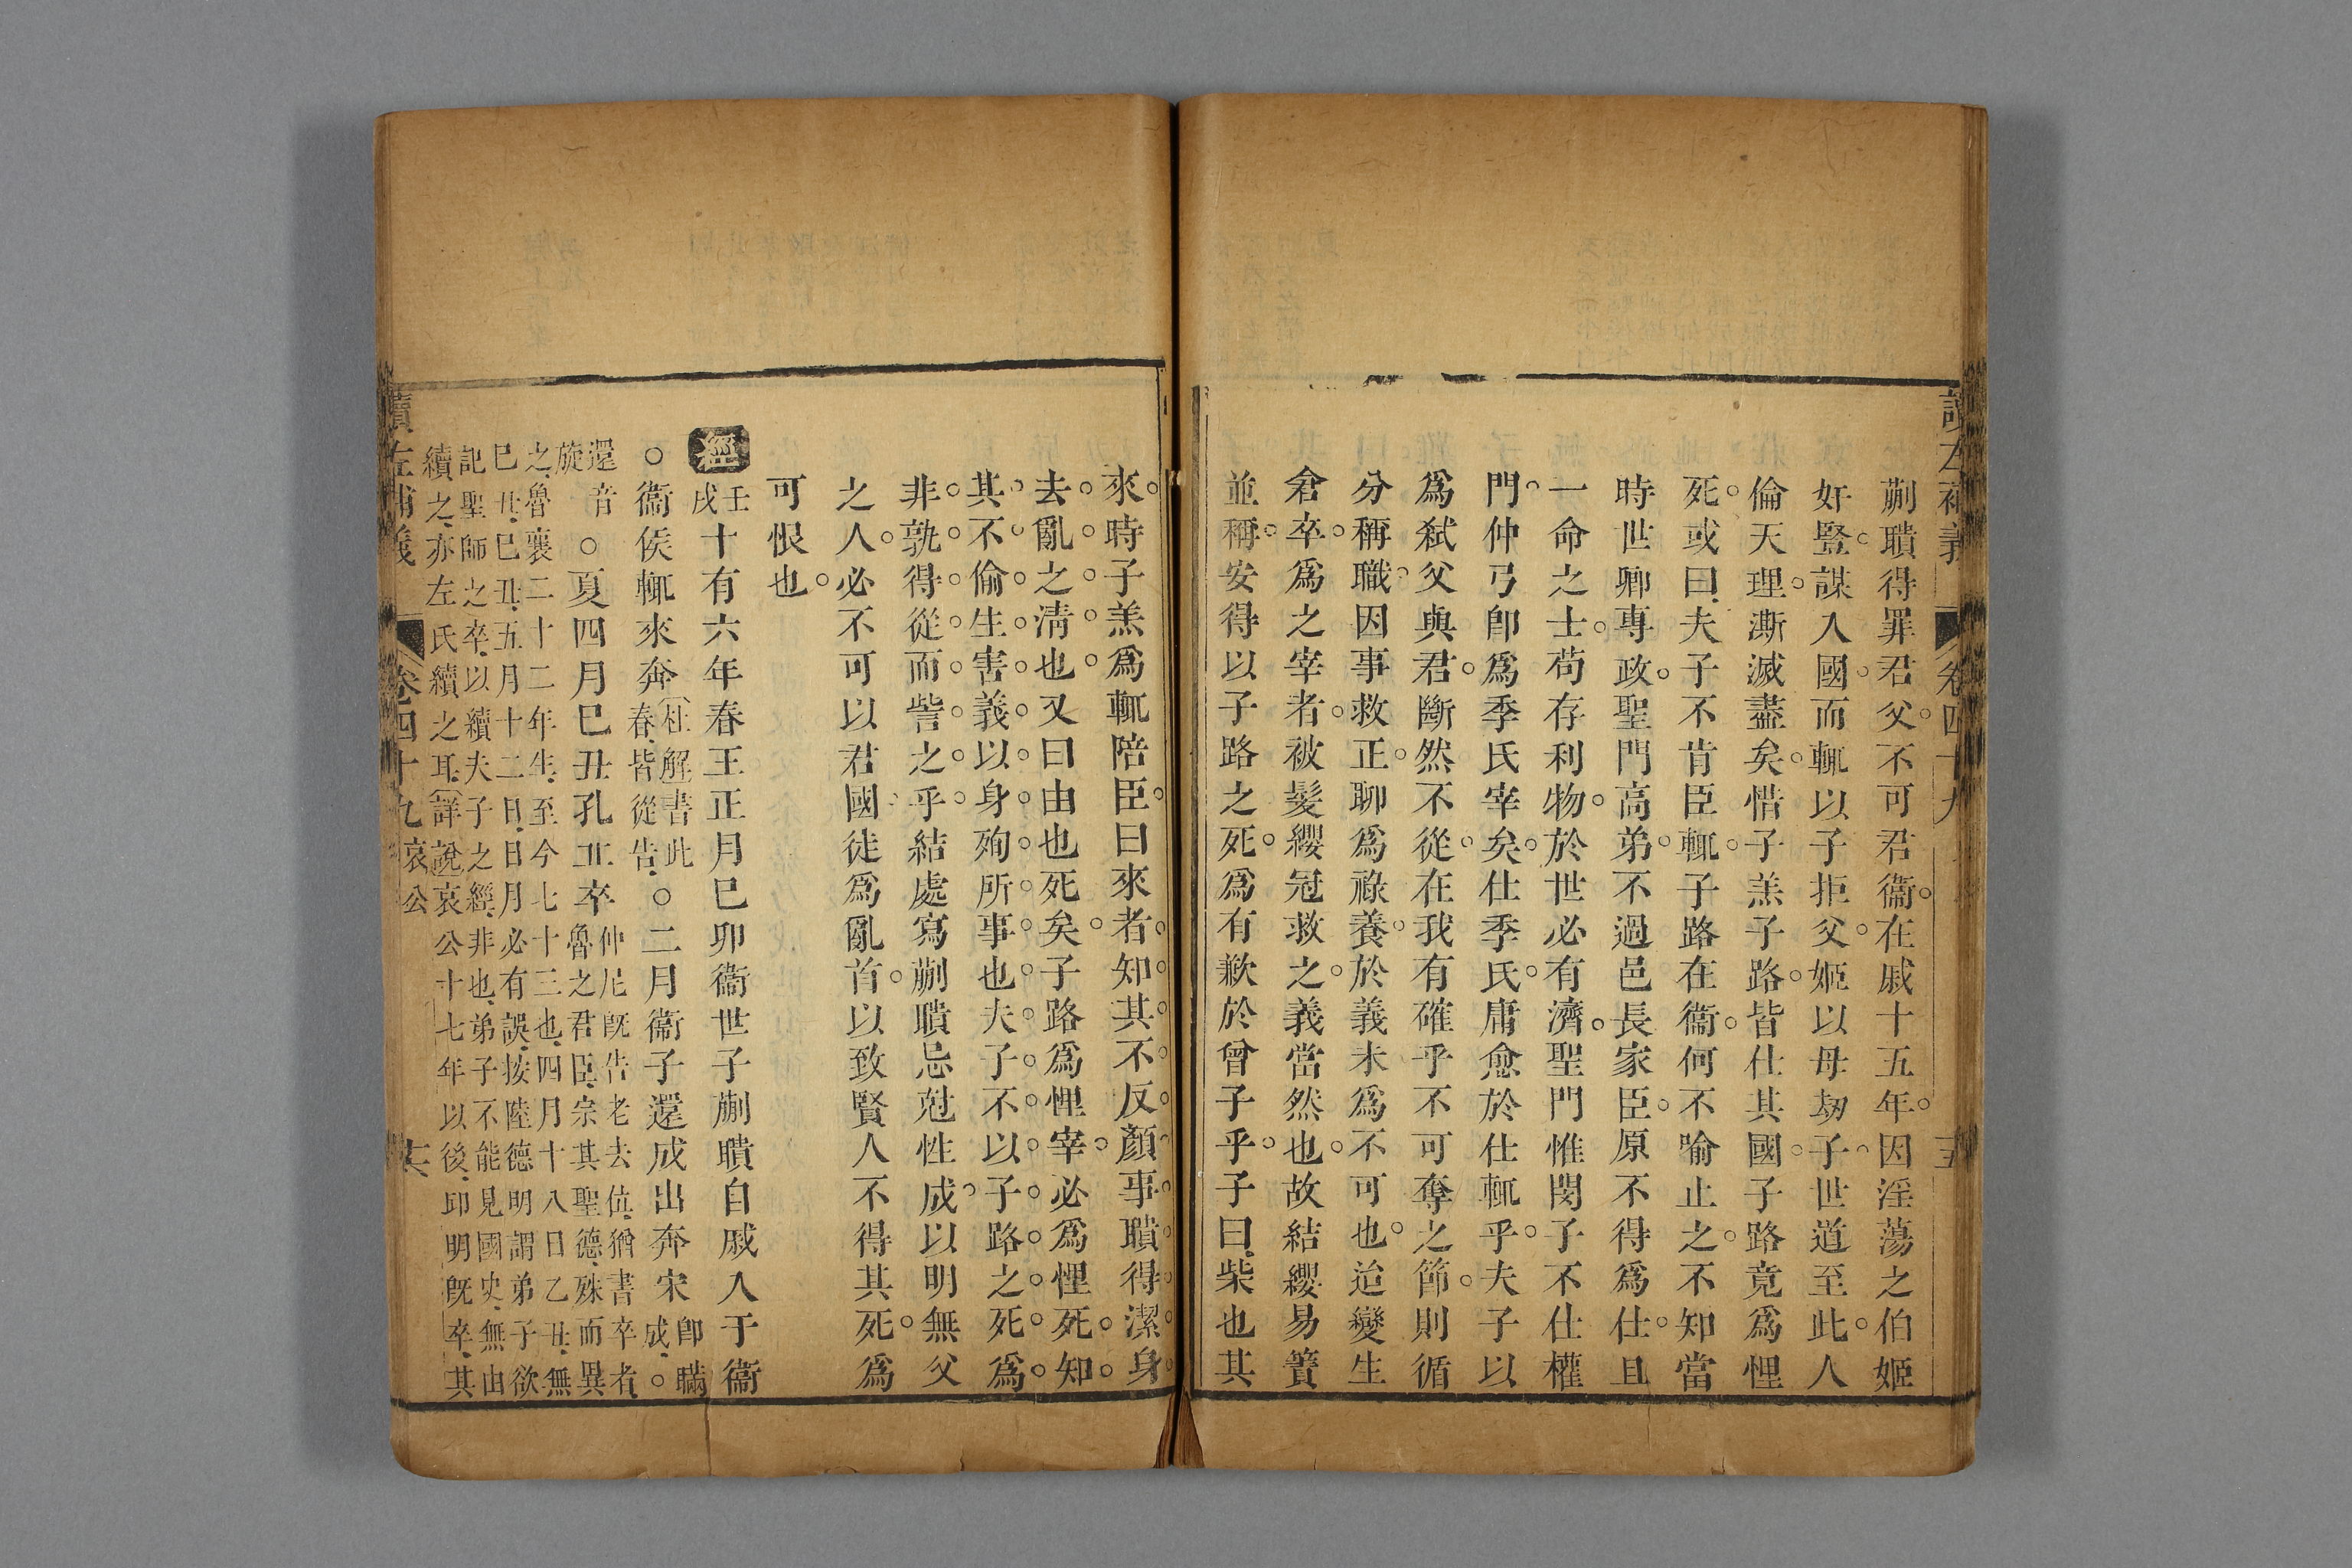 讀左補義
卷四十九
蒯聵得罪君父不可君衞在戚十五年因淫蕩之伯姬
奸豎謀入國而輒以子拒父姬以母刼子世道至此人
倫天理澌滅盡矣惜子羔子路皆仕其國子路竟爲悝
死或曰夫子不肯臣輒子路在衞何不喻止之不知當
時世卿專政聖門高弟不過邑長家臣原不得爲仕且
一命之士苟存利物於世必有濟聖門惟閔子不仕權
門仲弓卽爲季氏宰矣仕季氏庸愈於仕輒乎夫子以
爲弒父與君斷然不從在我有確乎不可奪之節則循
分稱職因事救正聊爲祿養於義未爲不可也迨變生
倉卒爲之宰者被髮纓冠救之義當然也故結纓易簀
並稱安得以子路之死爲有歉於曾子乎子曰柴也其
來時子羔爲輒陪臣曰來者知其不反顏事聵得潔身
去亂之淸也又曰由也死矣子路爲悝宰必爲悝死知
其不偷生害義以身殉所事也夫子不以子路之死爲
非孰得從而訾之乎結處寫蒯聵忌尅性成以明無父
之人必不可以君國徒爲亂首以致賢人不得其死爲
可恨也
經
壬戌十有六年春王正月已卯衞世子蒯聵自戚入于衞
○衞侯輒來奔杜解書此春皆從告○二月衞子還成出奔宋卽瞞成○
還音旋○夏四月已丑孔丘卒仲尼旣告老去位猶書卒者
魯之君臣宗其聖德殊而異
之魯襄二十二年生至今七十三也四月十八日乙丑無
已丑已丑五月十二日日月必有誤按陸德明謂弟子欲
記聖師之卒以續夫子之經非也弟子不能見國史無由
續之亦左氏續之耳詳說哀公十七年以後邱明旣卒其
讀左補義
卷四十九哀公